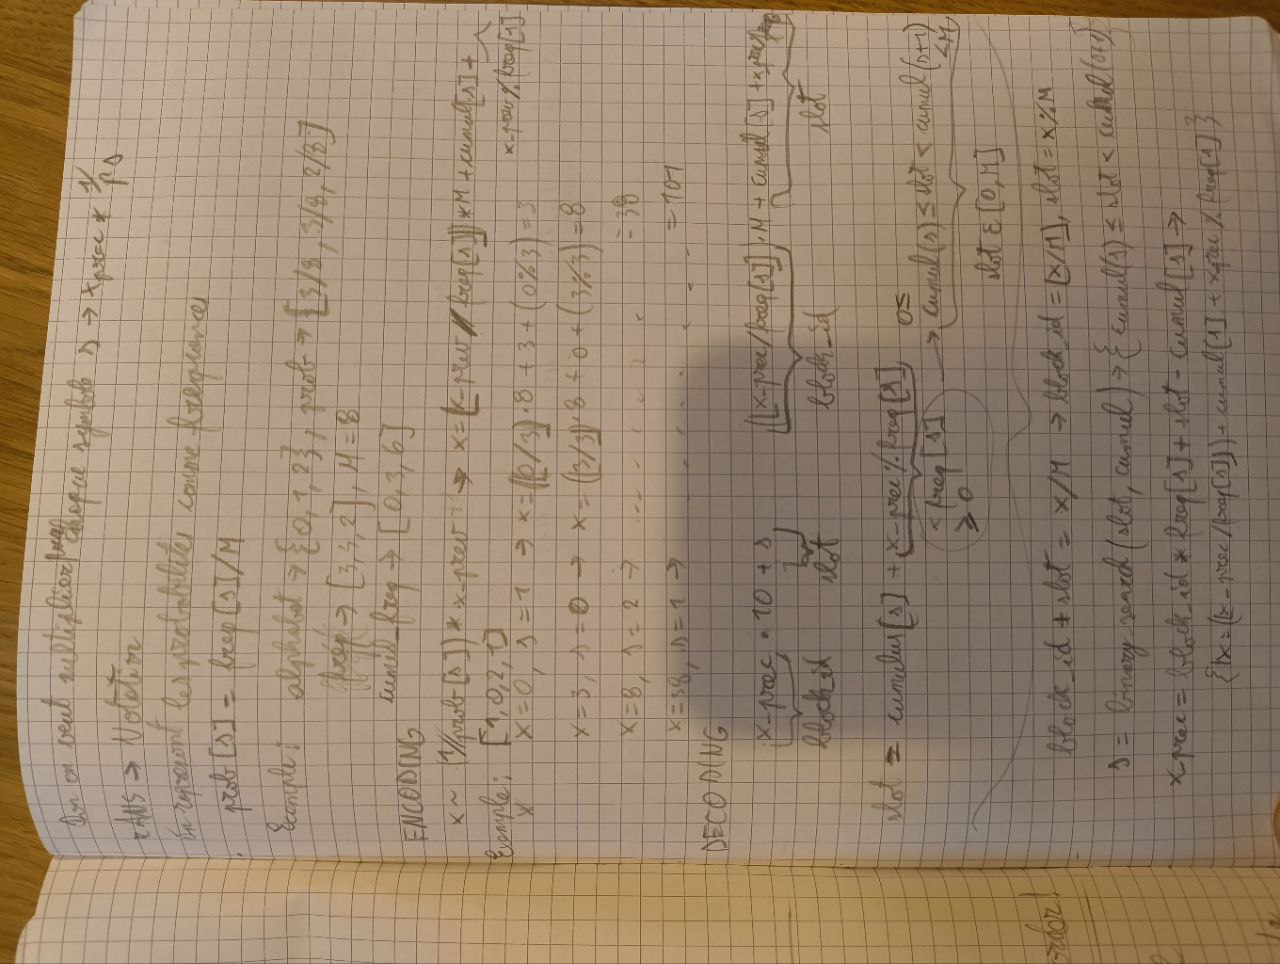 Donc on veut multiplier par chaque symbole s → x_prec * 1/ps
rANS → Notation
On représente les probabilités comme fréquences
prob[s] = freq[s]/M
Exemple: alphabet → {0, 1, 2}, prob → [3/8, 3/8, 2/8]
freq → [3, 3, 2], M = 8
cumul_freq → [0, 3, 6]
ENCODING
x ~ (1/prob[s]) * x-prev → x = ⌊x-prev // freq[s]⌋ * M + cumul[s] +
x-prev % freq[s]
Exemple: [1, 0, 2, 1]
x = 0, s = 1 → x = (⌊0/3⌋) · 8 + 3 + (0 % 3) = 3
x = 3, s = 0 → x = (⌊3/3⌋) · 8 + 0 + (3 % 3) = 8
x = 8, s = 2 → = 38
x = 38, s = 1 → = 101
DECODING
x-prec · 10 + s (⌊x-prec/freq[s]⌋) · M + cumul[s] + x-prec %
block_id slot block_id slot
slot = cumul[s] + x-prec % freq[s] 0 ≤
< freq[s] → cumul(s) ≤ slot < cumul(s+1)
≥ 0 < M
slot ∈ [0, M]
block_id + slot = x/M → block_id = ⌊x/M⌋, slot = x % M
s = binary search (slot, cumul) → { cumul(s) ≤ slot < cumul(s+1)
x-prec = block_id * freq[s] + slot - cumul[s] →
{ x = (x-prec/freq[s]) + cumul[s] + x-prec % freq[s] }